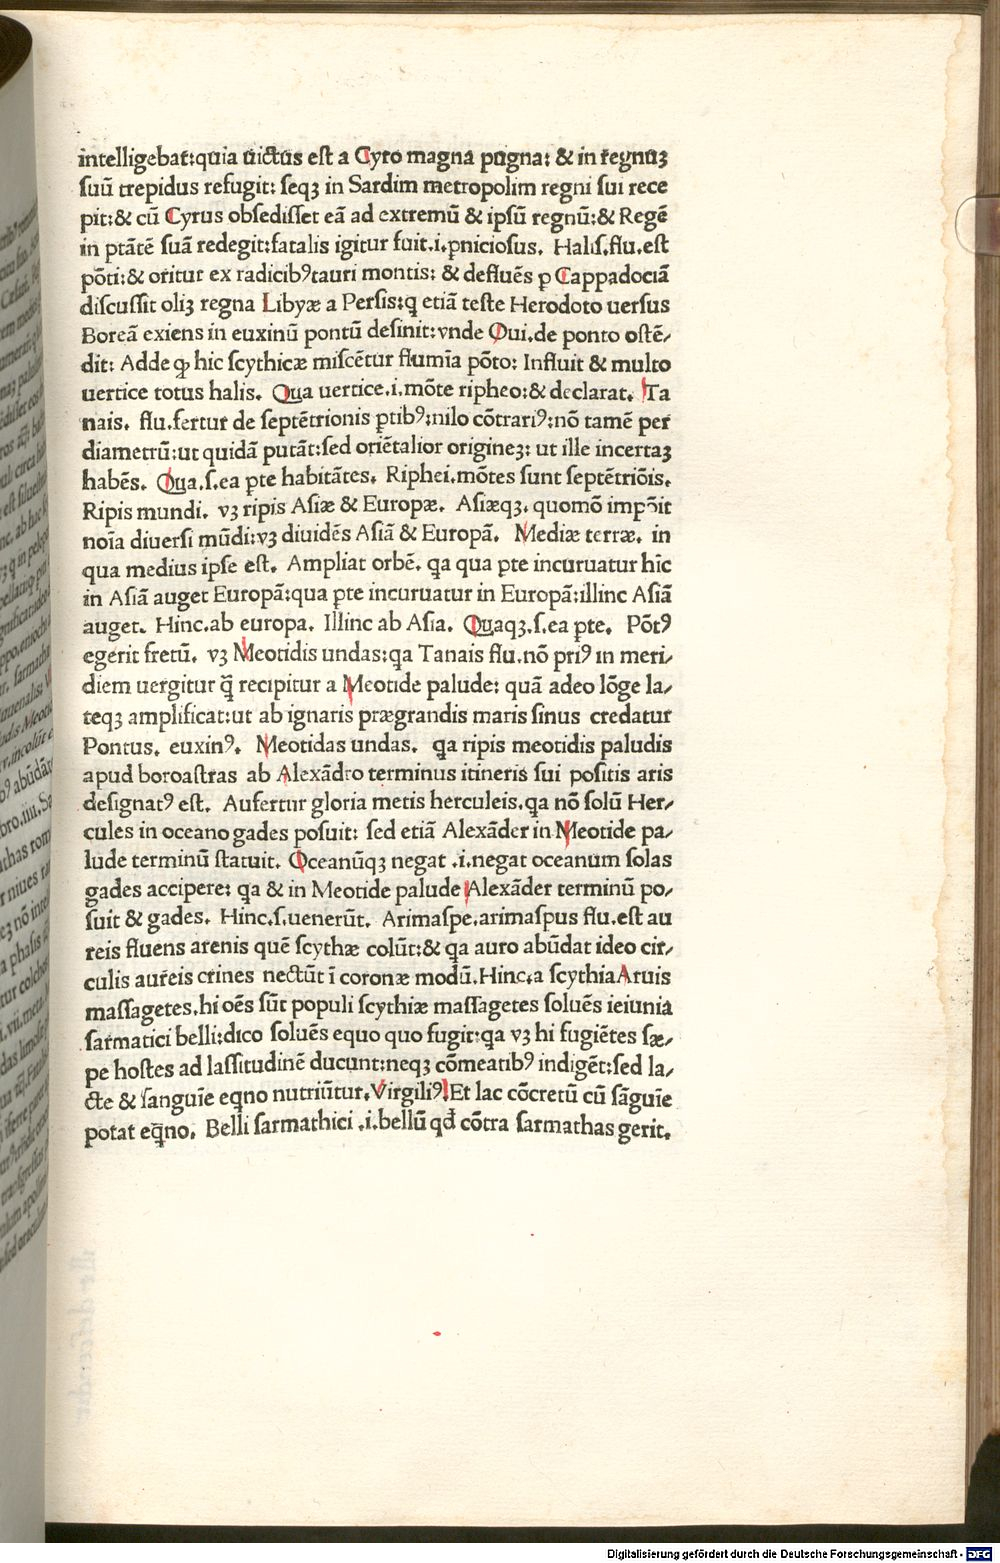 intelligebat:quia uictus eſt a Cyro magna pugna: & in regnuꝫ
ſuū trepidus refugit: ſeqꝫ in Sardim metropolim regni ſui rece
pit:& cū Cyrus obſediſſet eā ad extremū & ipſū regnū:& Regē
in ptātē ſuā redegit:fatalis igitur fuit.i.ꝑnicioſus. Haliſ.flu.eſt
pōti:& oritur ex radicibꝰtauri montis: & defluēs ꝑ Cappadociā
diſcuſſit oliꝫ regna Libyæ a Perſis:ꝗ etiā teſte Herodoto uerſus
Boreā exiens in euxinū pontū deſinit:vnde Oui.de ponto oſtē/
dit: Adde ꝙ hic ſcythicæ miſcētur flumīa pōto: Influit & multo
uertice totus halis. Qua uertice.i.mōte ripheo:& declarat. Ta
nais. flu.fertur de ſeptētrionis ꝑtibꝰ:nilo cōtrariꝰ:nō tamē per
diametrū:ut quidā putāt:ſed oriētalior origineꝫ: ut ille incertaꝫ
habēs. Qua.ſ.ea ꝑte habitātes. Riphei.mōtes ſunt ſeptētriōis.
Ripis mundi. vꝫ ripis Aſiæ & Europæ. Aſiæqꝫ. quomō impōit
noīa diuerſi mūdi:vꝫ diuidēs Aſiā & Europā. Mediæ terræ. in
qua medius ipſe eſt. Ampliat orbē. ꝗa qua ꝑte incuruatur hīc
in Aſiā auget Europā:qua ꝑte incuruatur in Europā:illinc Aſiā
auget. Hinc.ab europa. Illinc ab Aſia. Quaqꝫ.ſ.ea ꝑte. Pōtꝰ
egerit fretū. vꝫ Meotidis undas:ꝗa Tanais flu.nō priꝰ in meri/
diem uergitur q̄̃ recipitur a Meotide palude: quā adeo lōge la/
teqꝫ amplificat:ut ab ignaris prægrandis maris ſinus credatur
Pontus. euxinꝰ. Meotidas undas. ꝗa ripis meotidis paludis
apud boroaſtras ab Alexādro terminus itineris ſui poſitis aris
deſignatꝰ eſt. Aufertur gloria metis herculeis.ꝗa nō ſolū Her/
cules in oceano gades poſuit: ſed etiā Alexāder in Meotide pa/
lude terminū ſtatuit. Oceanūqꝫ negat .i.negat oceanum ſolas
gades accipere: ꝗa & in Meotide palude Alexāder terminū po/
ſuit & gades. Hinc.ſ.uenerūt. Arimaſpe.arimaſpus flu.eſt au
reis fluens arenis quē ſcythæ colūt:& ꝗa auro abūdat ideo cir/
culis aureis crines nectūt ī coronæ modū.Hinc.a ſcythiaAruis
maſſagetes.hi oēs ſūt populi ſcythiæ maſſagetes ſoluēs ieiunia
ſarmatici belli:dico ſoluēs equo quo fugit:ꝗa vꝫ hi fugiētes ſæ/
pe hoſtes ad laſſitudinē ducunt:neqꝫ cōmeatibꝰ indigēt:ſed la/
cte & ſanguīe eqno nutriūtur.Virgiliꝰ:Et lac cōcretū cū ſāguīe
potat eq̄no. Belli ſarmathici .i.bellū qđ cōtra ſarmathas gerit.
Digitalisierung gefördert durch die Deutsche Forschungsgemeinschaft - DFG